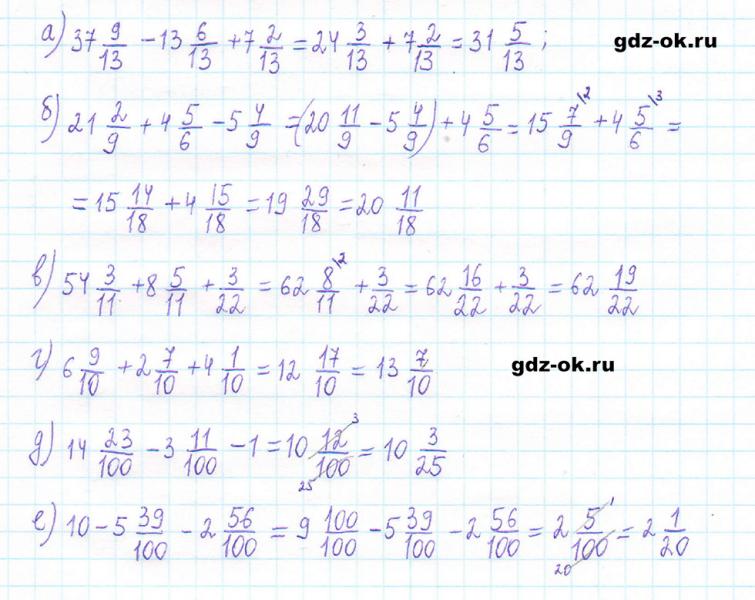 а) 37 9/13 − 13 6/13 + 7 2/13 = 24 3/13 + 7 2/13 = 31 5/13 ;
gdz-ok.ru
б) 21 2/9 + 4 5/6 − 5 4/9 = (20 11/9 − 5 4/9) + 4 5/6 = 15 7/9 \2 + 4 5/6 \3 =
= 15 14/18 + 4 15/18 = 19 29/18 = 20 11/18
в) 54 3/11 + 8 5/11 + 3/22 = 62 8/11 \2 + 3/22 = 62 16/22 + 3/22 = 62 19/22
г) 6 9/10 + 2 7/10 + 4 1/10 = 12 17/10 = 13 7/10
gdz-ok.ru
д) 14 23/100 − 3 11/100 − 1 = 10 12/100 3 25 = 10 3/25
е) 10 − 5 39/100 − 2 56/100 = 9 100/100 − 5 39/100 − 2 56/100 = 2 5/100 1 20 = 2 1/20